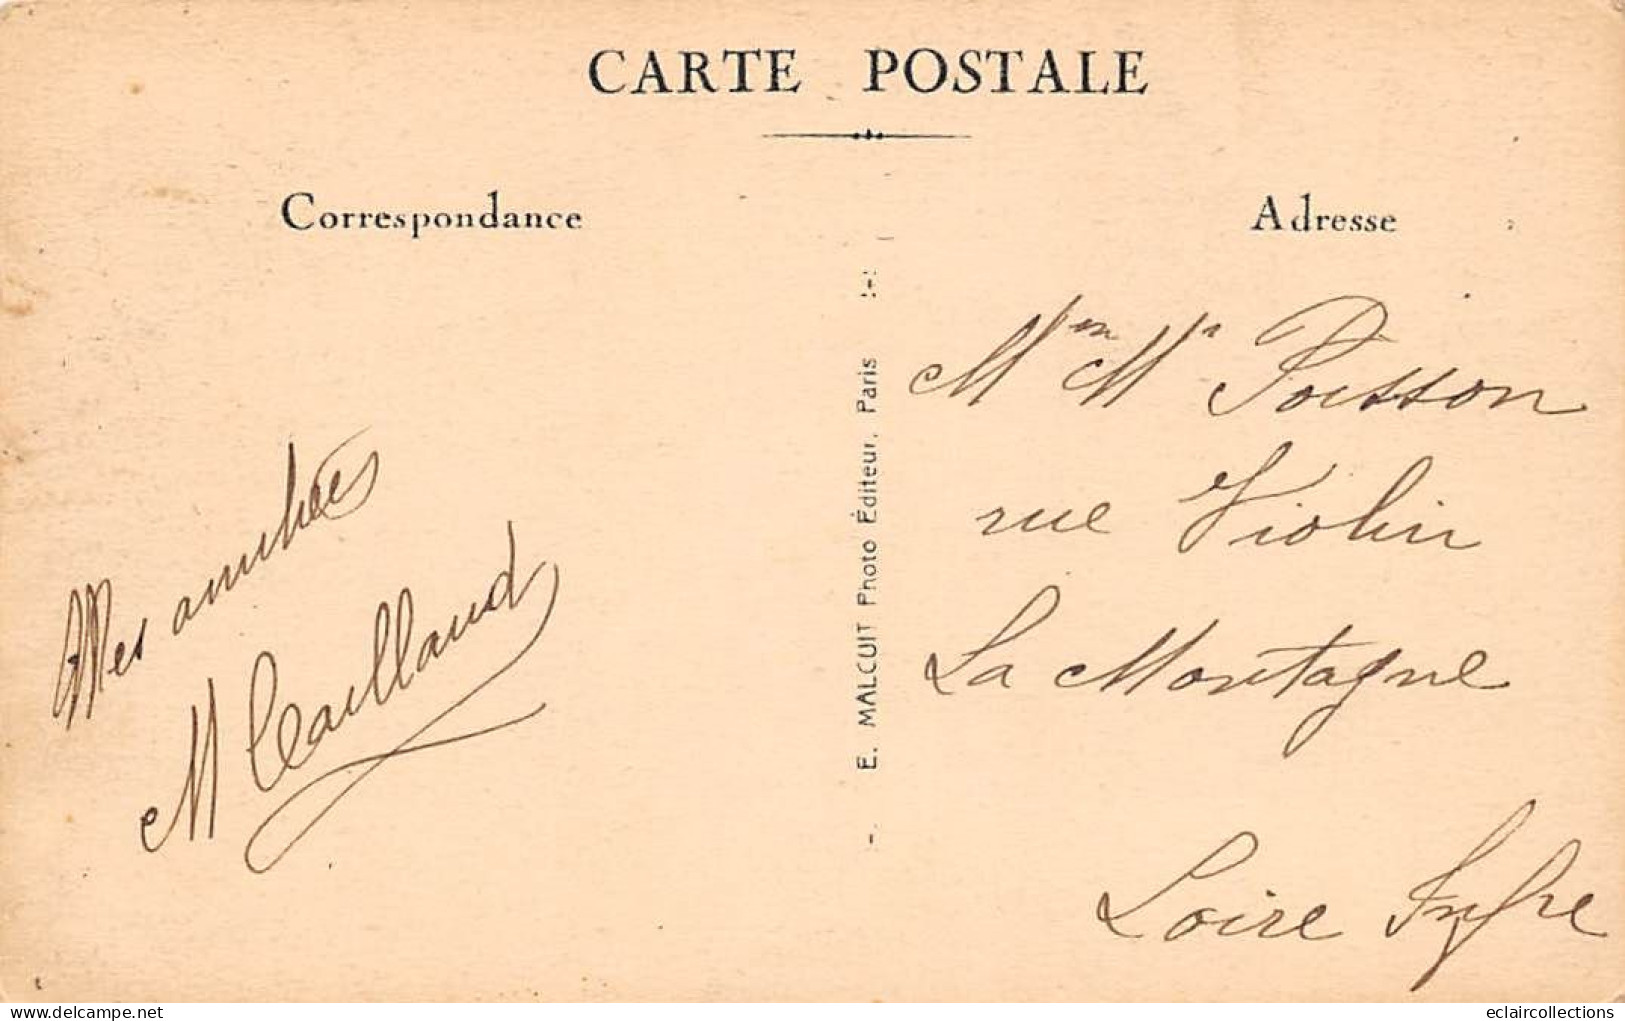 CARTE POSTALE
Correspondance
Adresse
Mes amitiés
M Caillaud
E. MALCUIT Photo Éditeur, Paris
Mme Mr Poisson
rue Violin
La Montagne
Loire Infre
delcampe.net
eclaircollections